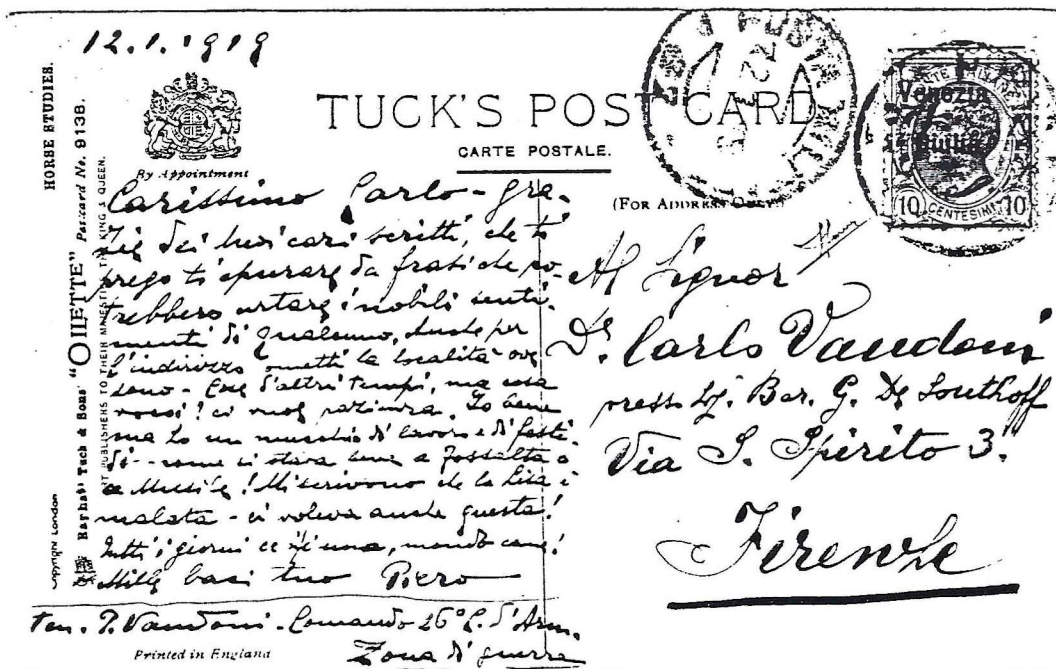 12.1.1919
HORSE STUDIES.
Raphael Tuck & Sons' "OILETTE" Postcard No. 9138.
ART PUBLISHERS TO THEIR MAJESTIES THE KING & QUEEN.
Copyright London
By Appointment
TUCK'S POST CARD
CARTE POSTALE.
(FOR ADDRESS ONLY)
Venezia
Giulia
10 CENTESIMI 10
Carissimo Carlo - gra-
zie dei tuoi cari scritti, che ti
prego di epurare da frasi che po-
trebbero urtare i nobili senti-
menti di qualcuno. Anche per
l'indirizzo ometti la località ove
sono - Cose d'altri tempi, ma cosa
vuoi! ci vuole pazienza. Io bene
ma ho un mucchio di lavoro e di fasti-
di - come si stava bene a Fossalta o
a Musile! Mi scrivono che la Lisa è
malata - ci voleva anche questa!
Tutti i giorni ce n'è una, mondo cane!
Mille baci tuo Piero
Ten. P. Vandoni - Comando 26° C. d'Arm.
Zona di guerra
Printed in England
Al Signor
Dr. Carlo Vandoni
presso Sig. Bar. G. De Southoff
Via S. Spirito 3.
Firenze